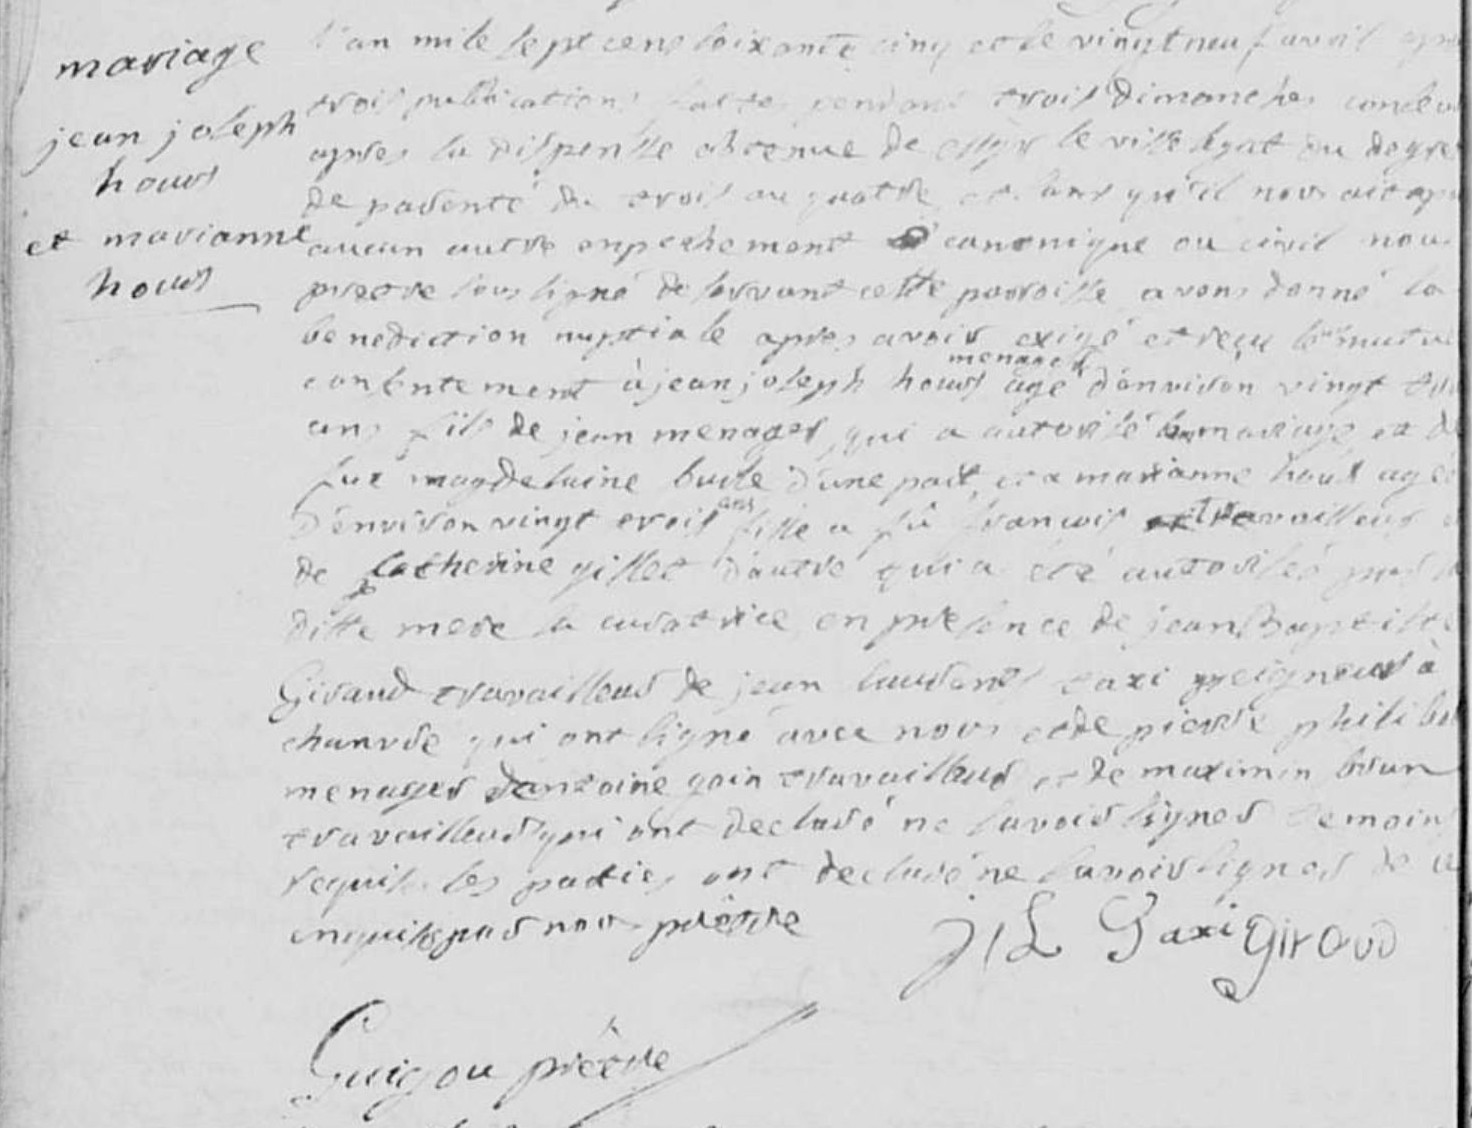 mariage
jean joseph
hours
et marianne
hours
l'an mile sept cens soixante cinq et le vingt neuf avril
trois publications faites pendant trois dimanches
apres la dispense obtenue de le vise legat du degre
de parenté du trois au quatre et sans qu'il nous ait
aucun autre enpechement canonique ou civil nous
pretre sous signé desservant cette parroisse avons donné la
benediction nuptiale apres avoir exigé et reçu le mutu
menager
consentement à jean joseph hours agé d'environ vingt
ans fils de jean menager qui a autorisé mariage et de
fue magdelaine d'une part et a marianne hours agée
ans
d'environ vingt trois fille a fû françois travailleur
de catherine gillet d'autre qui a eté autorisée par
ditte mere sa curatrice en presence de jean Baptiste
Giraud travailleur de jean laurens taxi peigneur à
chanvre qui ont signé avec nous et de pierre philibe
menager d'antoine goin travailleur et de maximin brun
travailleur qui ont declaré ne savoir signer temoins
requis les parties ont declaré ne savoir signer de ce
enquis par nous prêtre
J L Taxi Giroud
Guigou prêtre